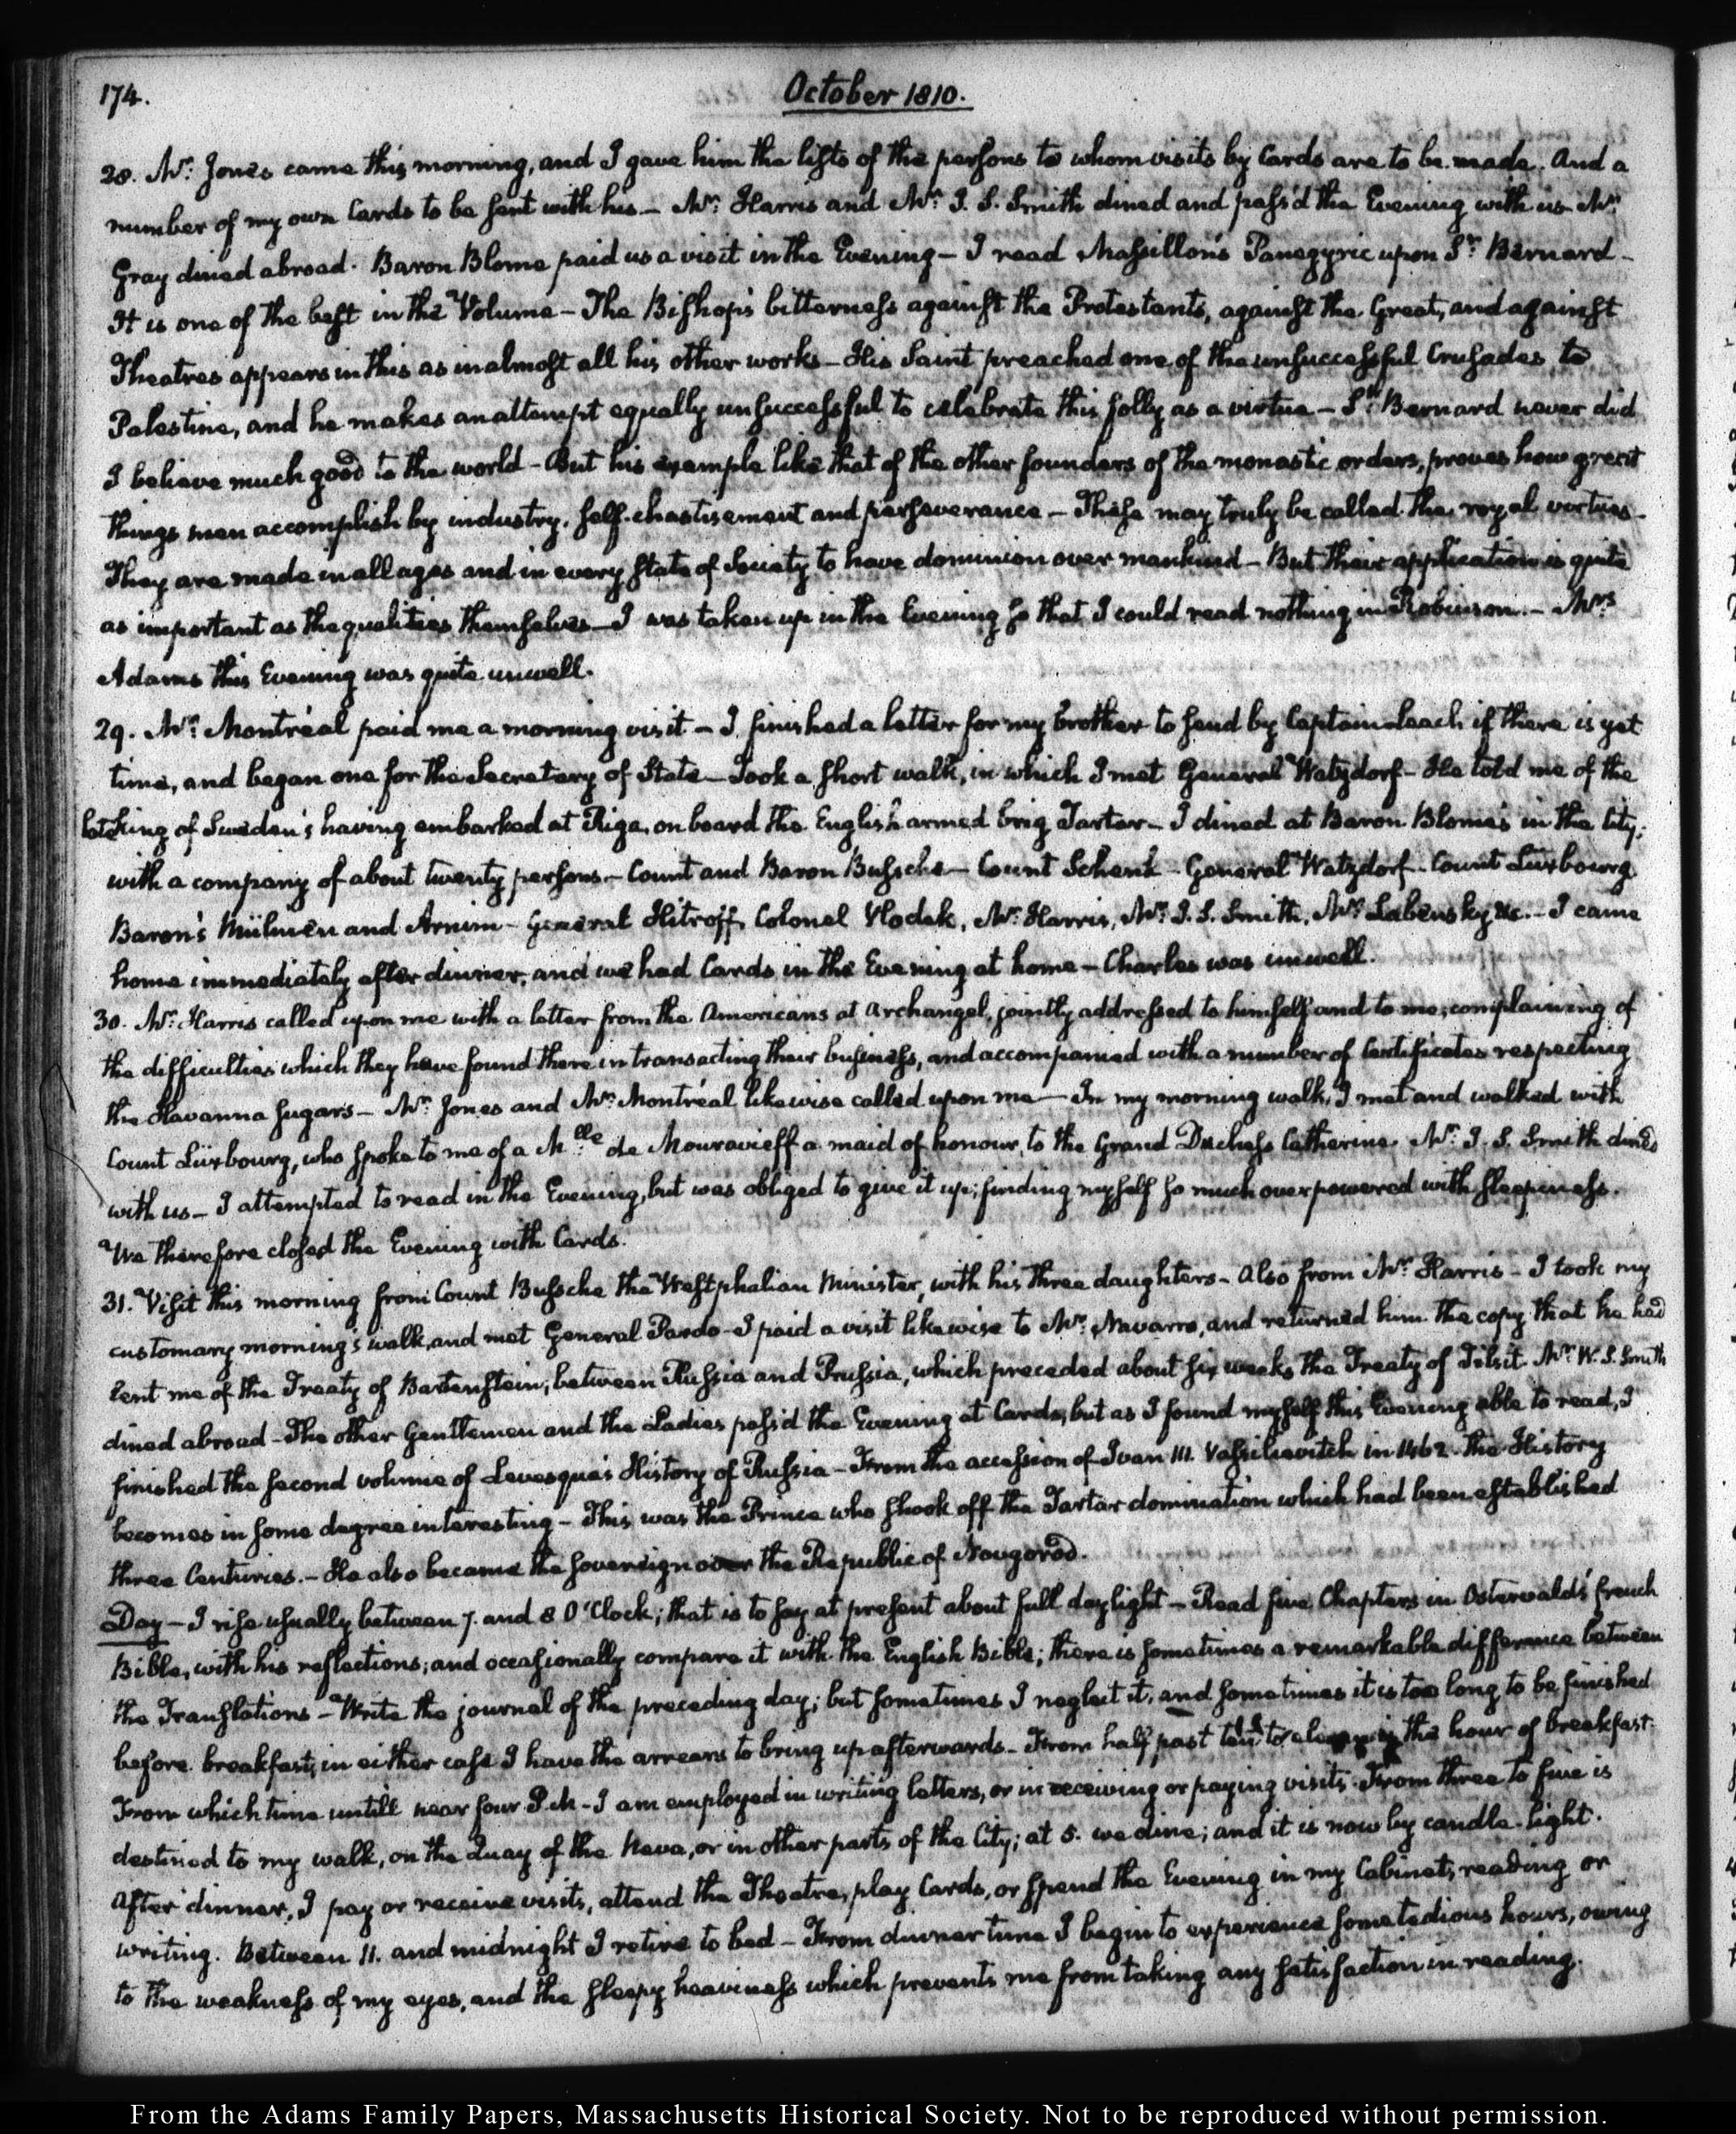 174.
October 1810.
28. Mr: Jones came this morning, and I gave him the lists of the persons to whom visits by Cards are to be made. And a
number of my own Cards to be sent with his — Mr: Harris and Mr: J. S. Smith dined and pass'd the Evening with us Mr:
Gray dined abroad. Baron Blome paid us a visit in the Evening — I read Massillon's Panegyric upon St: Bernard —
It is one of the best in the Volume — The Bishop's bitterness against the Protestants, against the Great, and against
Theatres appears in this as in almost all his other works — His Saint preached one of the unsuccessful Crusades to
Palestine, and he makes an attempt equally unsuccessful to celebrate this folly as a virtue — St: Bernard never did
I believe much good to the world — But his example like that of the other founders of the monastic orders, proves how great
things men accomplish by industry, self-chastisement and perseverance — These may truly be called the royal virtues —
They are made in all ages and in every State of Society to have dominion over mankind — But their application is quite
as important as the qualities themselves — I was taken up in the Evening so that I could read nothing in Robinson. — Mrs
Adams this Evening was quite unwell.
29. Mr: Montréal paid me a morning visit — I finished a letter for my brother to send by Captain Leach if there is yet
time, and began one for the Secretary of State — Took a short walk, in which I met General Watzdorf — He told me of the
late King of Sweden's having embarked at Riga, on board the English armed brig Tartar — I dined at Baron Blome's in the City;
with a company of about twenty persons — Count and Baron Bussche — Count Schenk — General Watzdorf — Count Luxbourg
Baron's Mülinen and Arnim — General Hitroff, Colonel Vlodek, Mr: Harris, Mr: J. S. Smith, Mr: Labensky &c. — I came
home immediately after dinner, and we had Cards in the Evening at home — Charles was unwell.
30. Mr: Harris called upon me with a letter from the Americans at Archangel, jointly addressed to himself and to me; complaining of
the difficulties which they have found there in transacting their business, and accompanied with a number of Certificates respecting
the Havanna sugars — Mr: Jones and Mr: Montréal likewise called upon me — In my morning walk, I met and walked with
Count Luxbourg, who spoke to me of a Mlle: de Mouravieff a maid of honour to the Grand Duchess Catherine. Mr: J. S. Smith dined
with us — I attempted to read in the Evening, but was obliged to give it up; finding myself so much overpowered with sleepiness.
We therefore closed the Evening with Cards.
31. Visit this morning from Count Bussche the Westphalian Minister, with his three daughters — Also from Mr: Harris — I took my
customary morning's walk, and met General Pardo — I paid a visit likewise to Mr: Navarro, and returned him the copy that he had
lent me of the Treaty of Bartenstein, between Russia and Prussia, which preceded about six weeks the Treaty of Tilsit. Mr: W. S. Smith
dined abroad — The other Gentlemen and the Ladies pass'd the Evening at Cards, but as I found myself this Evening able to read, I
finished the second volume of Levesque's History of Russia — From the accession of Ivan III. Vassilievitch in 1462 the History
becomes in some degree interesting — This was the Prince who shook off the Tartar domination which had been established
three Centuries. — He also became the sovereign over the Republic of Novgorod.
Day — I rise usually between 7. and 8 O'Clock; that is to say at present about full daylight — Read five Chapters in Osterwald's french
Bible, with his reflections; and occasionally compare it with the English Bible; there is sometimes a remarkable difference between
the Translations — Write the journal of the preceding day; but sometimes I neglect it, and sometimes it is too long to be finished
before breakfast; in either case I have the arrears to bring up afterwards — From half past ten to is the hour of breakfast.
From which time untill near four P.M — I am employed in writing letters, or in receiving or paying visits. From three to five is
destined to my walk, on the Quay of the Neva, or in other parts of the City; at 5. we dine; and it is now by candle-light.
After dinner, I pay or receive visits, attend the Theatre, play Cards, or spend the Evening in my Cabinet, reading or
writing. Between 11. and midnight I retire to bed — From dinner time I begin to experience some tedious hours, owing
to the weakness of my eyes, and the sleepy heaviness which prevents me from taking any satisfaction in reading.
From the Adams Family Papers, Massachusetts Historical Society. Not to be reproduced without permission.